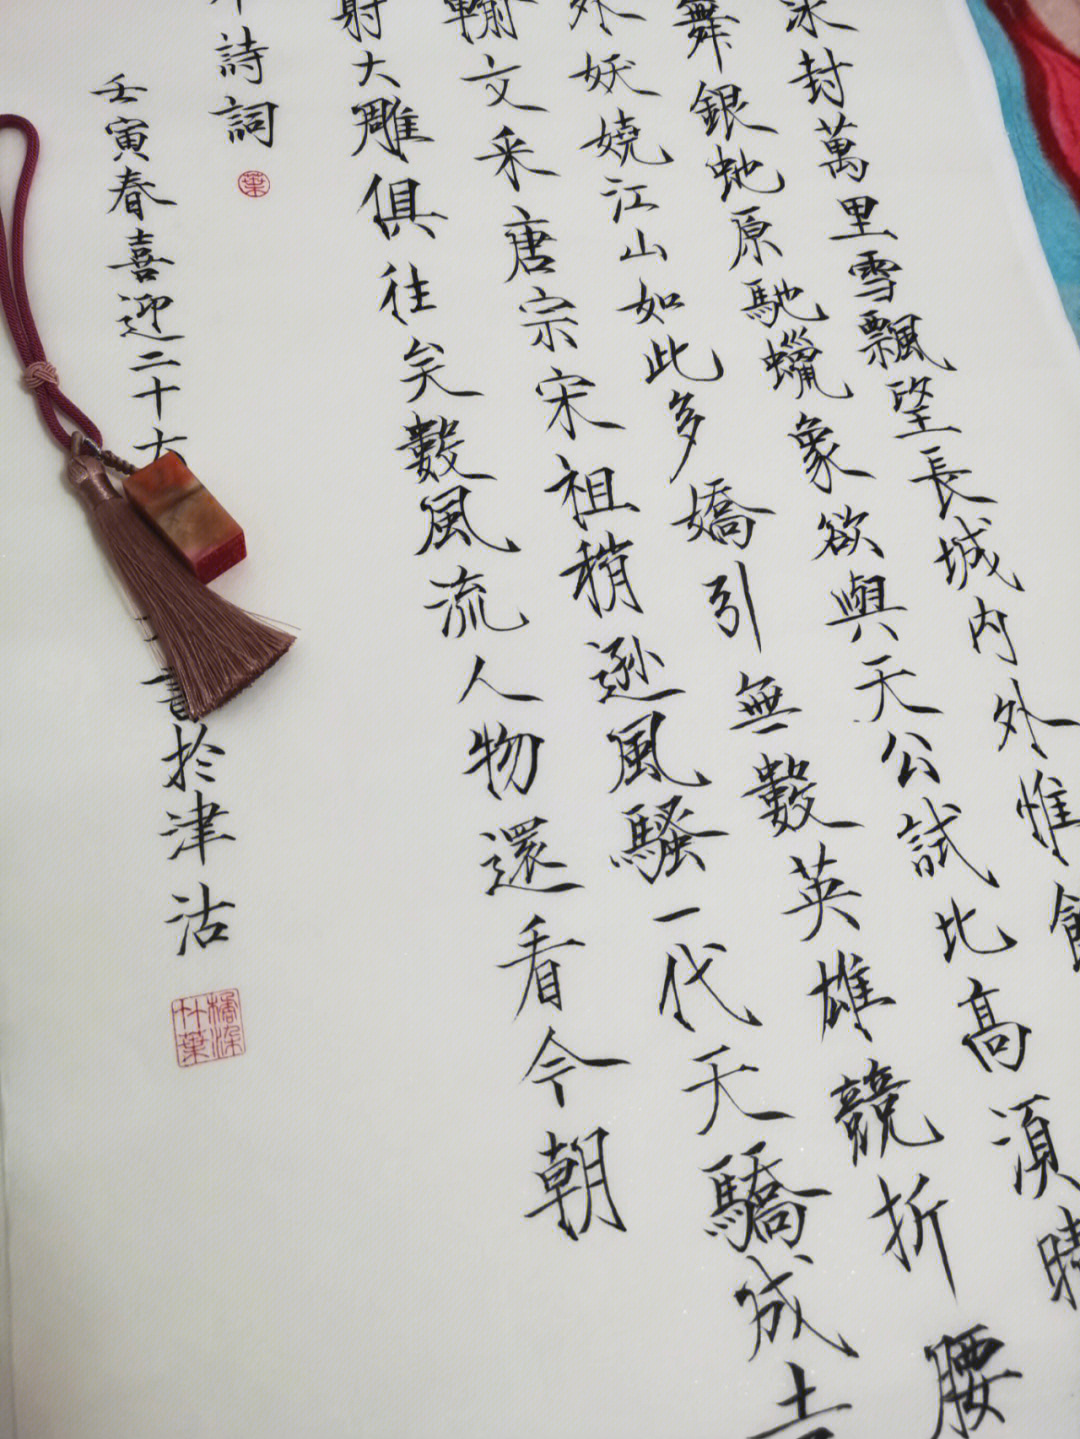 冰封萬里雪飄望長城内外惟
舞銀虵原馳蠟象欲與天公試比高須晴
外妖嬈江山如此多嬌引無數英雄競折腰
輸文采唐宗宋祖稍遜風騷一代天驕成吉
射大雕俱往矣數風流人物還看今朝
詩詞
葉
壬寅春喜迎二十大
書於津沽